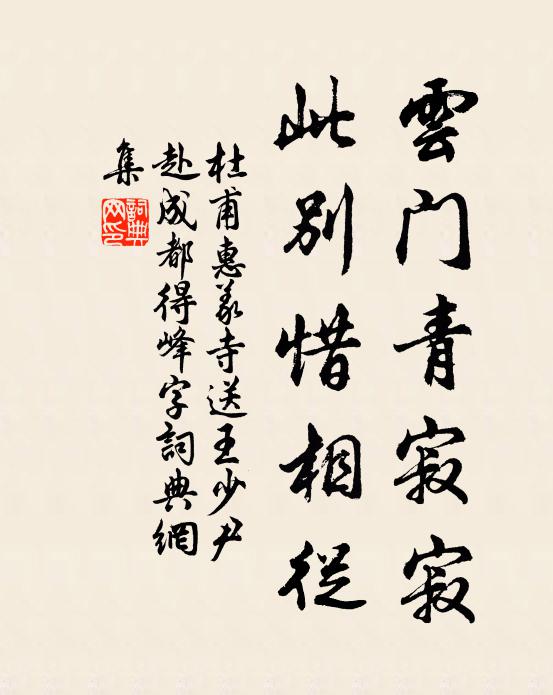 雲門青寂寂
此別惜相從
杜甫惠義寺送王少尹
赴成都得峰字詞典網
集
詞典網印